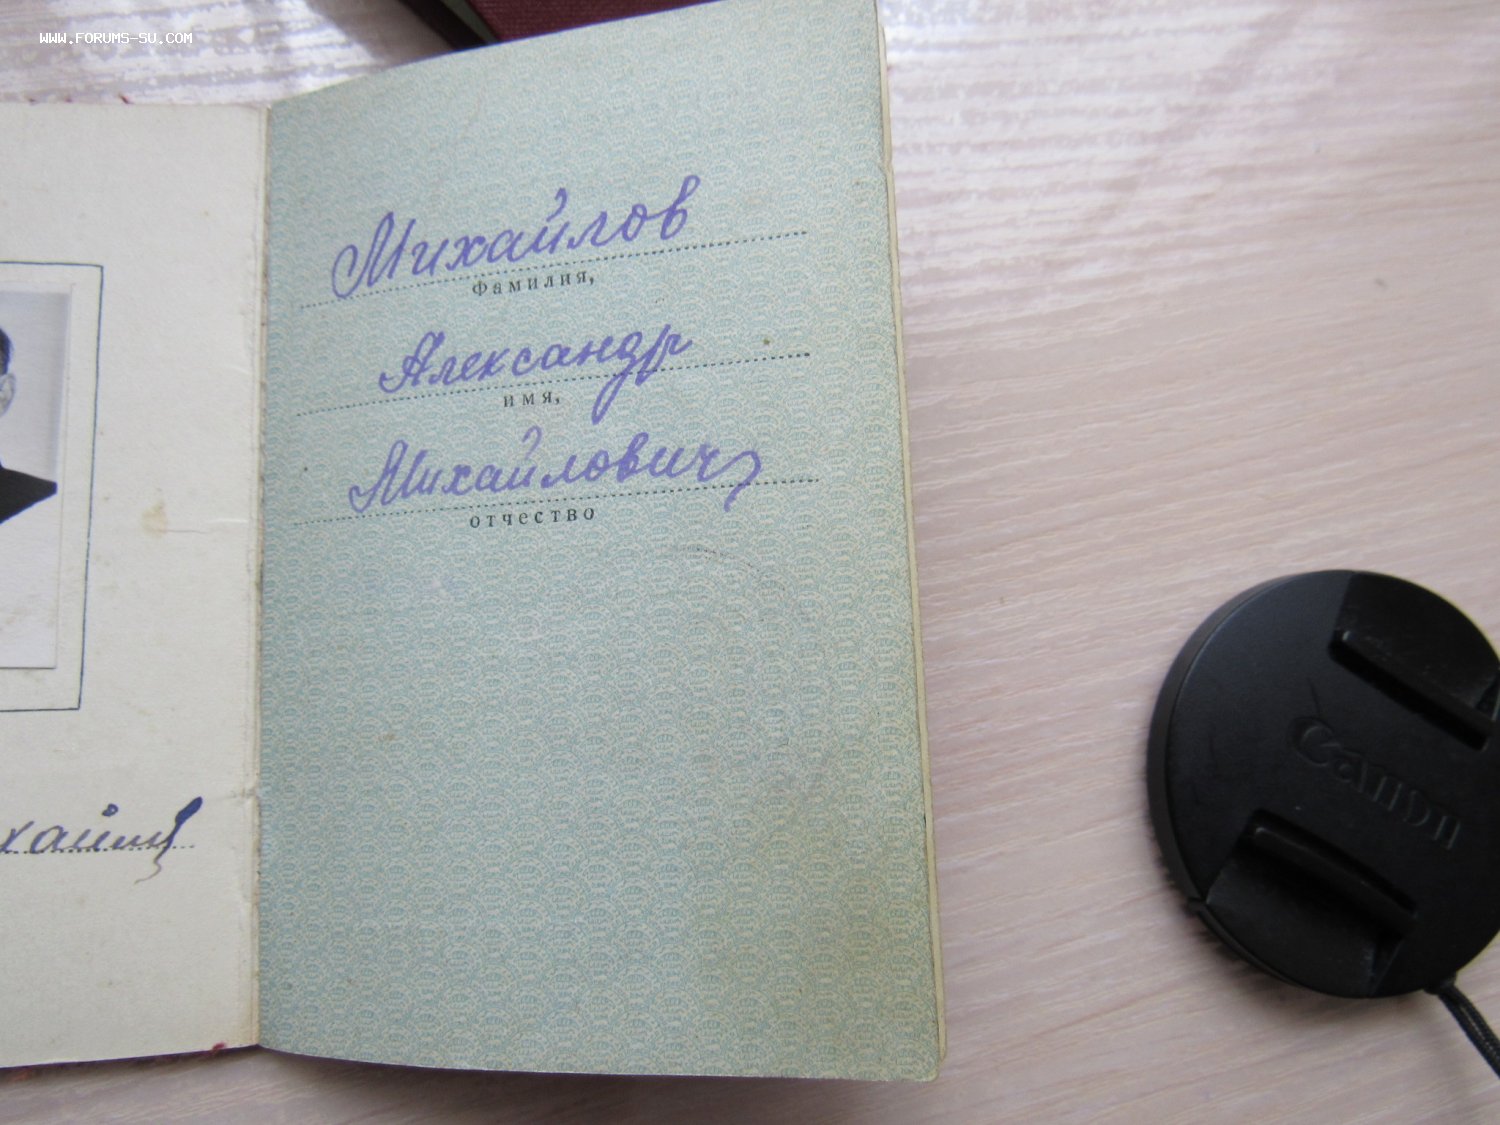 WWW.FORUMS-SU.COM
Михайлов
Фамилия,
Александр
имя,
Михайлович
отчество
Canon